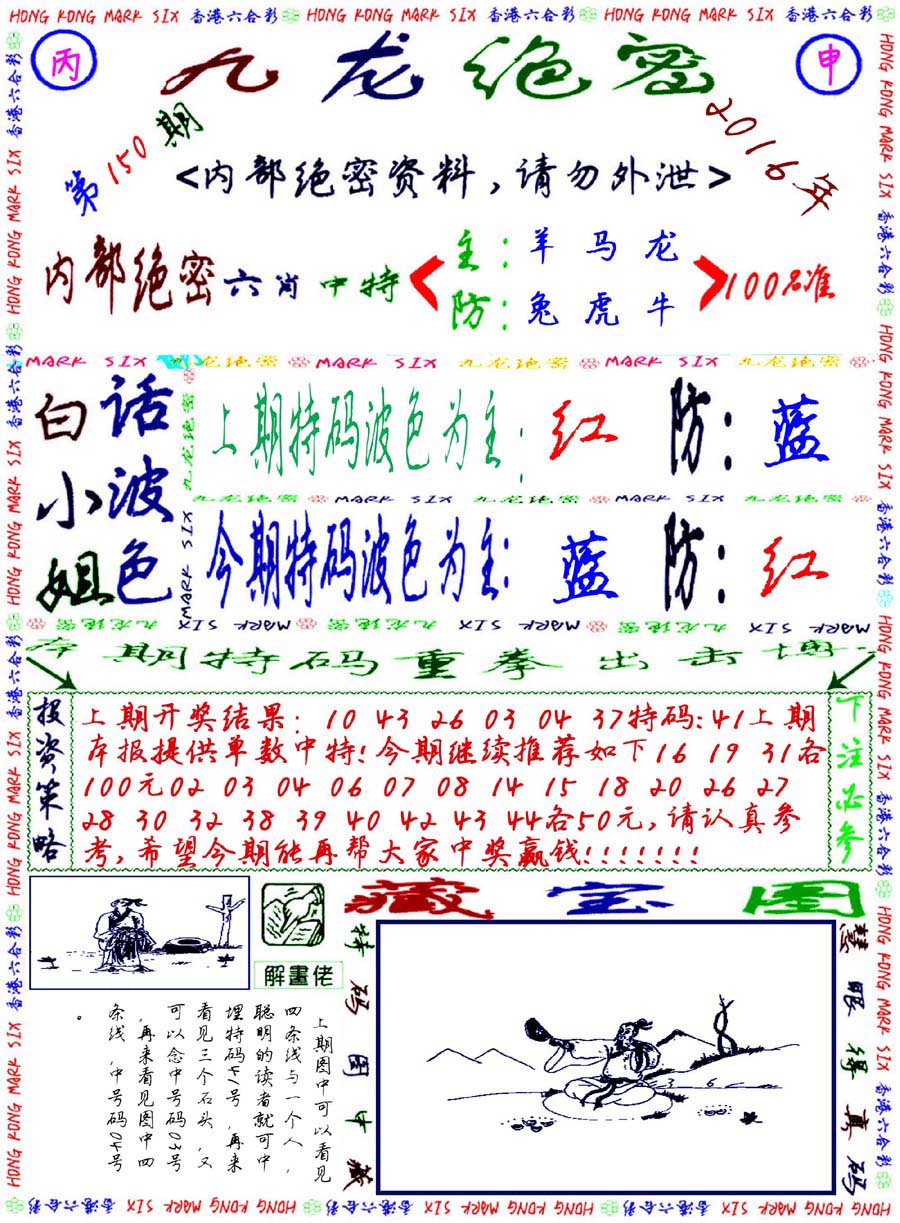 HONG KONG MARK SIX 香港六合彩 HONG KONG MARK SIX 香港六合彩 HONG KONG MARK SIX 香港六合彩
丙 九龙绝密 申
第150期
2016年
<内部绝密资料,请勿外泄>
内部绝密六肖中特
主:羊马龙
防:兔虎牛
100%准
MARK SIX 九龙绝密 MARK SIX 九龙绝密 MARK SIX 九龙绝密
白话
小波
姐色
上期特码波色为主:红 防:蓝
九龙绝密 MARK SIX 九龙绝密 MARK SIX 九龙绝密
今期特码波色为主:蓝 防:红
本期特码重拳出击博
投资策略
上期开奖结果: 10 43 26 03 04 37特码:41上期
本报提供单数中特!今期继续推荐如下16 19 31各
100元02 03 04 06 07 08 14 15 18 20 26 27
28 30 32 38 39 40 42 43 44各50元,请认真参
考,希望今期能再帮大家中奖赢钱!!!!!!!
下注必参
藏宝图
解畫佬
上期图中可以看见
四条线与一个人,
聪明的读者就可中
埋特码41号,再来
看见三个石头,又
可以念中号码03号
,再来看见图中四
条线,中号码04号
。
特码图中藏
慧眼得真码
HONG KONG MARK SIX 香港六合彩 HONG KONG MARK SIX 香港六合彩 HONG KONG MARK SIX 香港六合彩